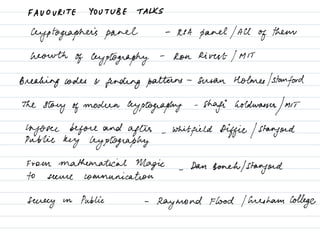 FAVOURITE YOUTUBE TALKS
Cryptographer's panel - RSA panel / All of them
Growth of Cryptography - Ron Rivest / MIT
Breaking codes & finding patterns - Susan Holmes / Stanford
The Story of modern Cryptography - Shafi Goldwasser / MIT
Before and after - Whitfield Diffie / Stanford
Public key Cryptography
From mathematical Magic - Dan Boneh / Stanford
to secure communication
Secrecy in Public - Raymond Flood / Gresham College